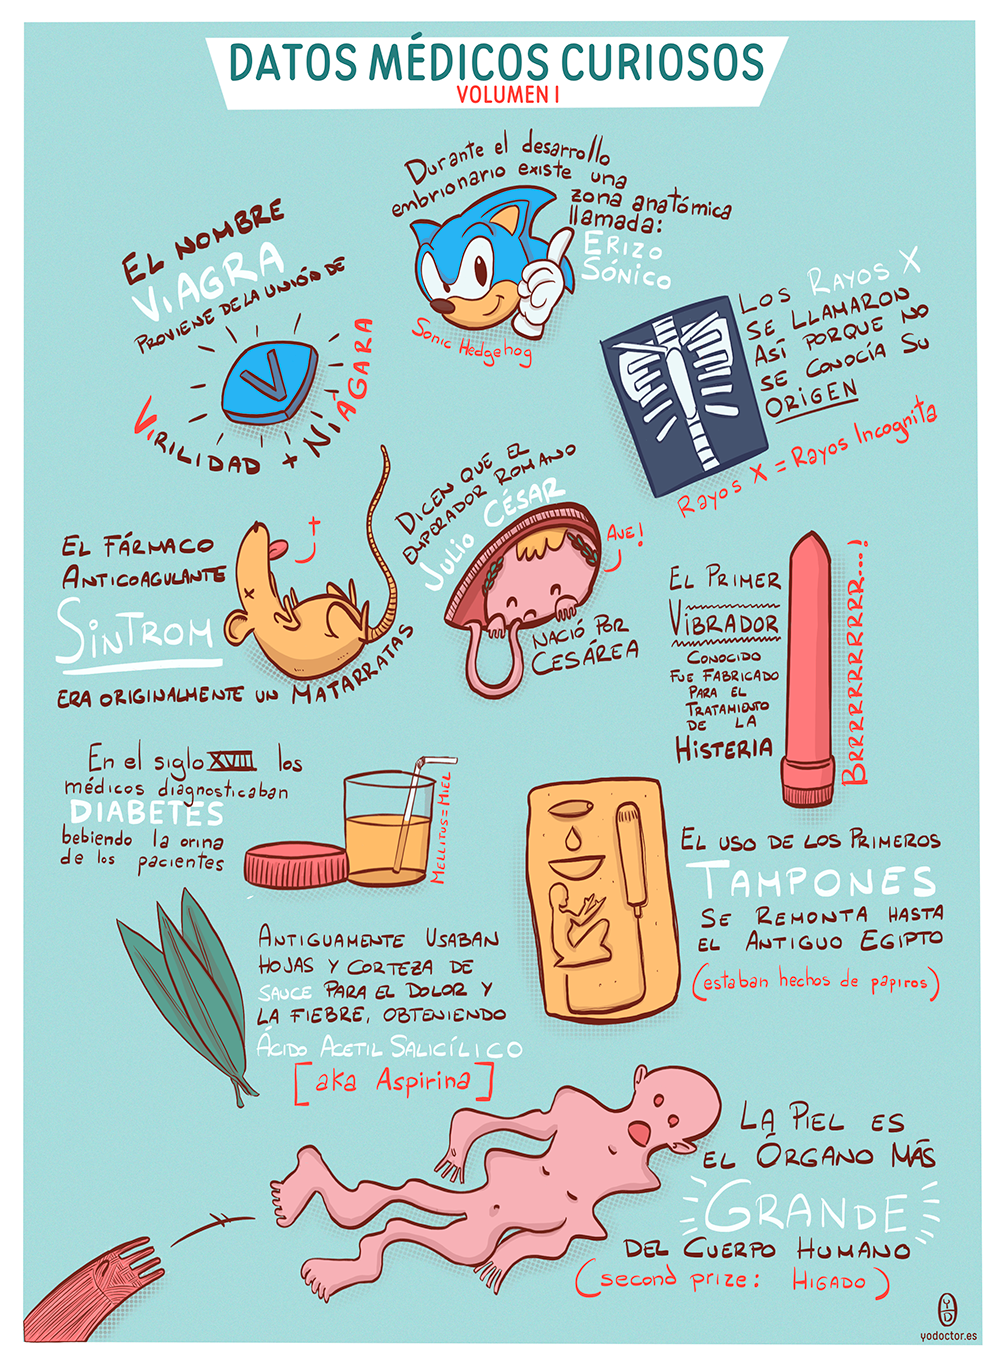 DATOS MÉDICOS CURIOSOS
VOLUMEN I
Durante el desarrollo
embrionario existe una
zona anatómica
llamada:
ERIZO
SÓNICO
Sonic Hedgehog
EL NOMBRE
VIAGRA
PROVIENE DE LA UNIÓN DE
V
VIRILIDAD + NIÁGARA
LOS RAYOS X
SE LLAMARON
ASÍ PORQUE NO
SE CONOCÍA SU
ORIGEN
Rayos X = Rayos Incognita
EL FÁRMACO
ANTICOAGULANTE
SINTROM
ERA ORIGINALMENTE UN MATARRATAS
DICEN QUE EL
EMPERADOR ROMANO
JULIO CÉSAR
AVE!
NACIÓ POR
CESÁREA
EL PRIMER
VIBRADOR
CONOCIDO
FUE FABRICADO
PARA EL
TRATAMIENTO
DE LA
HISTERIA
BRRRRRRRRRRR...!
En el siglo XVIII los
médicos diagnosticaban
DIABETES
bebiendo la orina
de los pacientes
MELLITUS = MIEL
EL USO DE LOS PRIMEROS
TAMPONES
SE REMONTA HASTA
EL ANTIGUO EGIPTO
(estaban hechos de papiros)
ANTIGUAMENTE USABAN
HOJAS Y CORTEZA DE
SAUCE PARA EL DOLOR Y
LA FIEBRE, OBTENIENDO
ÁCIDO ACETIL SALICÍLICO
[aka Aspirina]
LA PIEL ES
EL ÓRGANO MÁS
GRANDE
DEL CUERPO HUMANO
(second prize: HIGADO)
YD
yodoctor.es